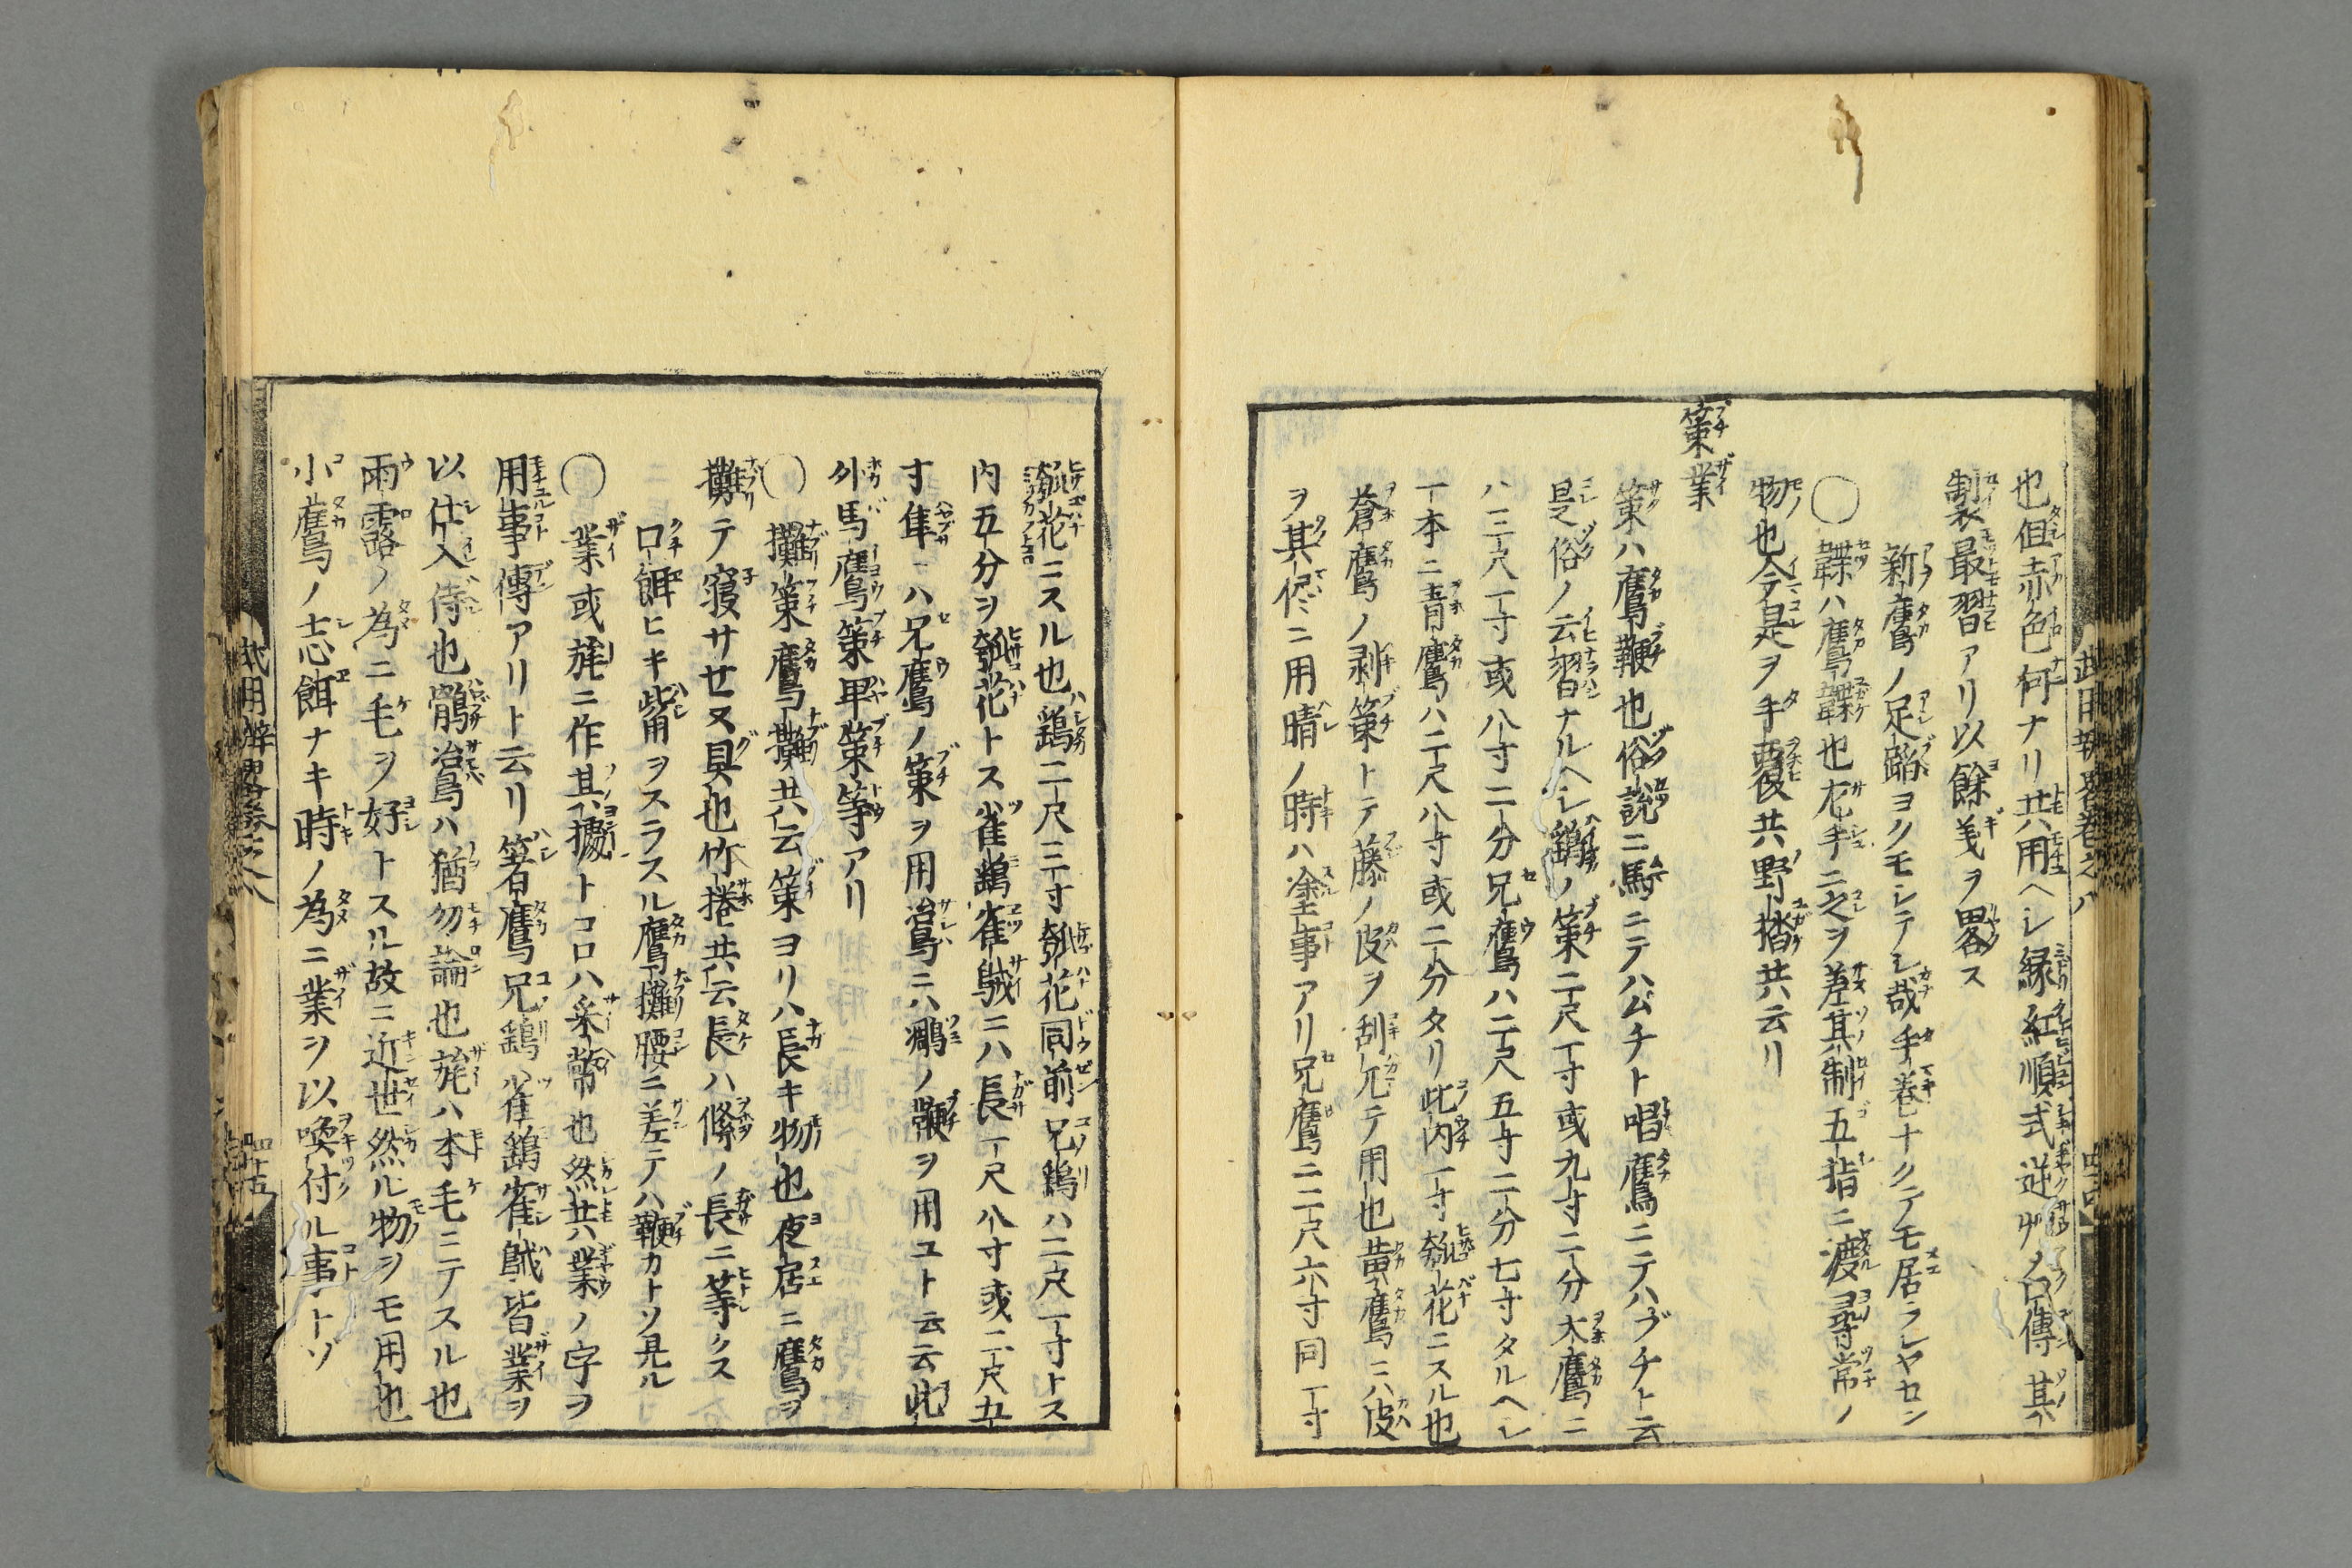 也但赤色何ナリ共用ヘシ縁紅順式逆ザノ名傳其
制衣最習アリ以餘義ヲ畧ス
新鷹ノ足蹈ヨクモシテシ哉手巻ナクテモ居ラレヤセン
○韘ハ鷹韘也左手ニ之ヲ差其制五指ニ渡尋常ノ
物也今是ヲ手覆共野沓共云リ
策業
策ハ鷹鞭也俗説ニ馬ニテハムチト唱鷹ニテハブチト云
是俗ノ云習ナルヘシ鷂ノ策二尺一寸或九寸二分大鷹ニ
ハ三尺一寸或八寸二分兄鷹ハ二尺五寸二分七寸タルヘシ
一本ニ青鷹ハ二尺八寸或二分タリ此内一寸瓠花ニスル也
蒼鷹ノ剥策トテ藤ノ皮ヲ刮テ用也黄鷹ニハ皮
ヲ其侭ニ用晴ノ時ハ塗事アリ兄鷹ニ二尺六寸同一寸
瓠花ニスル也鷂二尺三寸瓠花同前兄鷂ハ二尺一寸トス
内五分ヲ瓠花トス雀鷂雀𪀚ニハ長一尺八寸或二尺五
寸隼ニハ兄鷹ノ策ヲ用ニハノ鞭ヲ用ユト云云此
外馬鷹策早策等アリ
○攤策鷹攤共云策ヨリハ長キ物也夜居ニ鷹ヲ
攤テ寝サセヌ具也竹捲共云長ハ條ノ長ニ等クス
口餌ヒキ觜ヲスラスル鷹攤腰ニ差テハ鞭カトソ見ル
○業或旄ニ作其據トコロハ采幣也然共業ノ字ヲ
用事傳アリト云リ箸鷹兄鷂雀鷂雀𪀚皆業ヲ
以仕入侍也鶻ハ猶勿論也旄ハ本毛ニテスル也
雨露ノ為ニ毛ヲ好トスル故ニ近世然ル物ヲモ用也
小鷹ノ志餌ナキ時ノ為ニ業ヲ以喚付ル事トゾ